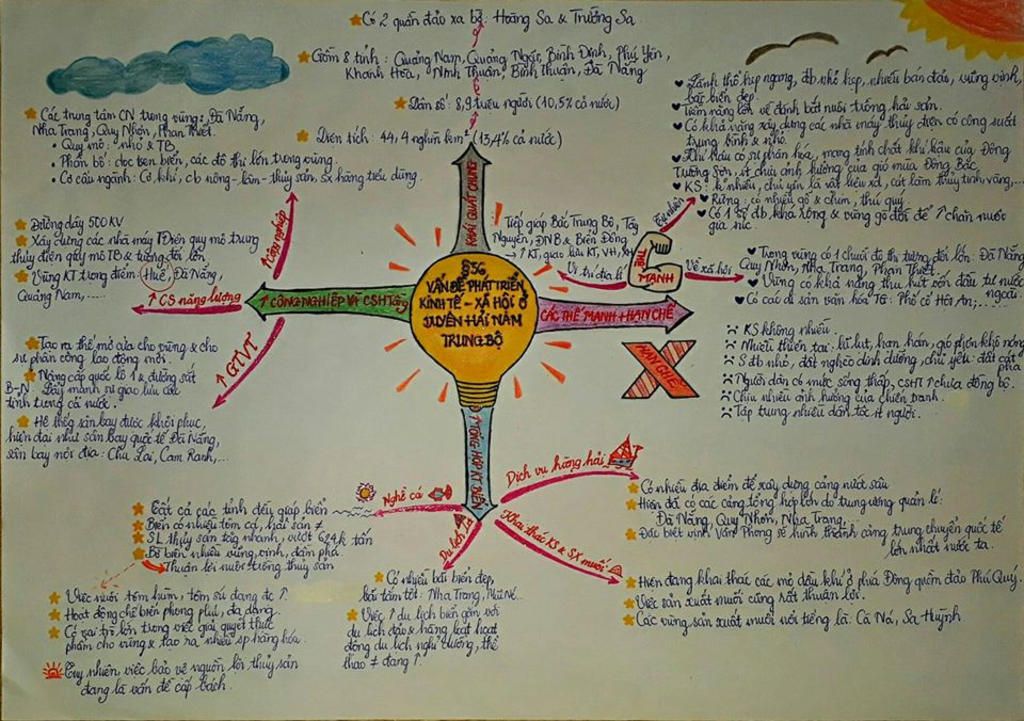 Có 2 quần đảo xa bờ: Hoàng Sa & Trường Sa
Gồm 8 tỉnh: Quảng Nam, Quảng Ngãi, Bình Định, Phú Yên,
Khánh Hòa, Ninh Thuận, Bình Thuận, Đà Nẵng
Dân số: 8,9 triệu người (10,5% cả nước)
Diện tích: 44,4 nghìn km² (13,4% cả nước)
KHÁI QUÁT CHUNG
§36
VẤN ĐỀ PHÁT TRIỂN
KINH TẾ - XÃ HỘI Ở
DUYÊN HẢI NAM
TRUNG BỘ
Các trung tâm CN trong vùng: Đà Nẵng,
Nha Trang, Quy Nhơn, Phan Thiết.
• Quy mô: nhỏ & TB
• Phân bố: dọc ven biển, các đô thị lớn trong vùng.
• Cơ cấu ngành: Cơ khí, cb nông-lâm-thủy sản, sx hàng tiêu dùng.
↑ Công nghiệp
Đường dây 500KV
Xây dựng các nhà máy TĐiện quy mô trung
thủy điện gây mô TB & tương đối lớn
Vùng KT trọng điểm: Huế, Đà Nẵng,
Quảng Nam,.....
↑ CS năng lượng
↑ CÔNG NGHIỆP VÀ CSHTầng
↑ GTVT
Tạo ra thế mở cửa cho vùng & cho
sự phân công lao động mới.
Nâng cấp quốc lộ 1 & đường sắt
B-N. Đẩy mạnh sự giao lưu các
tỉnh trong cả nước.
Hệ thống sân bay được khôi phục,
hiện đại như sân bay quốc tế Đà Nẵng,
sân bay nội địa: Chu Lai, Cam Ranh,...
Tiếp giáp Bắc Trung Bộ, Tây
Nguyên, ĐNB & Biển Đông.
→ ↑ KT, giao lưu KT, VH, XH
Vị trí địa lí
THẾ
MẠNH
Tự nhiên
Lãnh thổ hẹp ngang, đb nhỏ hẹp, nhiều bán đảo, vũng vịnh,
bãi biển đẹp.
Tiềm năng lớn về đánh bắt nuôi trồng hải sản.
Có khả năng xây dựng các nhà máy thủy điện có công suất
trung bình & nhỏ.
Khí hậu có sự phân hóa, mang tính chất khí hậu của Đông
Trường Sơn, ít chịu ảnh hưởng của gió mùa Đông Bắc
KS: k nhiều, chủ yếu là vật liệu xd, cát làm thủy tinh, vàng,...
Rừng: có nhiều gỗ & chim, thú quý
Có 1 số đb, khá rộng & vùng gò đồi để ↑ chăn nuôi
gia súc.
Về xã hội
Trong vùng có 1 chuỗi đô thị tương đối lớn: Đà Nẵng
Quy Nhơn, Nha Trang, Phan Thiết
Vùng có khả năng thu hút vốn đầu tư nước
ngoài.
Có các di sản văn hóa TG: Phố cổ Hội An;...
CÁC THẾ MẠNH + HẠN CHẾ
HẠN CHẾ
KS không nhiều.
Nhiều thiên tai: lũ lụt, hạn hán, gió phơn khô nóng
S đb nhỏ, đất nghèo dinh dưỡng, chủ yếu: đất cát
pha
Người dân có mức sống thấp, CSHT ↑ chưa đồng bộ.
Chịu nhiều ảnh hưởng của chiến tranh.
Tập trung nhiều dân tộc ít người.
↑ TỔNG HỢP KT BIỂN
Nghề cá
Tất cả các tỉnh đều giáp biển
Biển có nhiều tôm cá, hải sản ≠
SL thủy sản tăng nhanh, vượt 624k tấn
Bờ biển nhiều vũng, vịnh, đầm phá
Thuận lợi nuôi trồng thủy sản
Việc nuôi tôm hùm, tôm sú đang đc ↑
Hoạt động chế biến phong phú, đa dạng.
Có vai trò lớn trong việc giải quyết thực
phẩm cho vùng & tạo ra nhiều sp hàng hóa.
Tuy nhiên, việc bảo vệ nguồn lợi thủy sản
đang là vấn đề cấp bách.
Du lịch
Có nhiều bãi biển đẹp,
bãi tắm tốt: Nha Trang, Mũi Né...
Việc ↑ du lịch biển gắn với
du lịch đảo & hàng loạt hoạt
động du lịch nghỉ dưỡng, thể
thao ≠ đang ↑.
Dịch vụ hàng hải
Có nhiều địa điểm để xây dựng cảng nước sâu
Hiện đã có các cảng tổng hợp lớn do trung ương quản lí:
Đà Nẵng, Quy Nhơn, Nha Trang.
Đặc biệt vịnh Vân Phong sẽ hình thành cảng trung chuyển quốc tế
lớn nhất nước ta.
Khai thác KS & SX muối
Hiện đang khai thác các mỏ dầu khí ở phía Đông quần đảo Phú Quý.
Việc sản xuất muối cũng rất thuận lợi.
Các vùng sản xuất muối nổi tiếng là: Cà Ná, Sa Huỳnh.